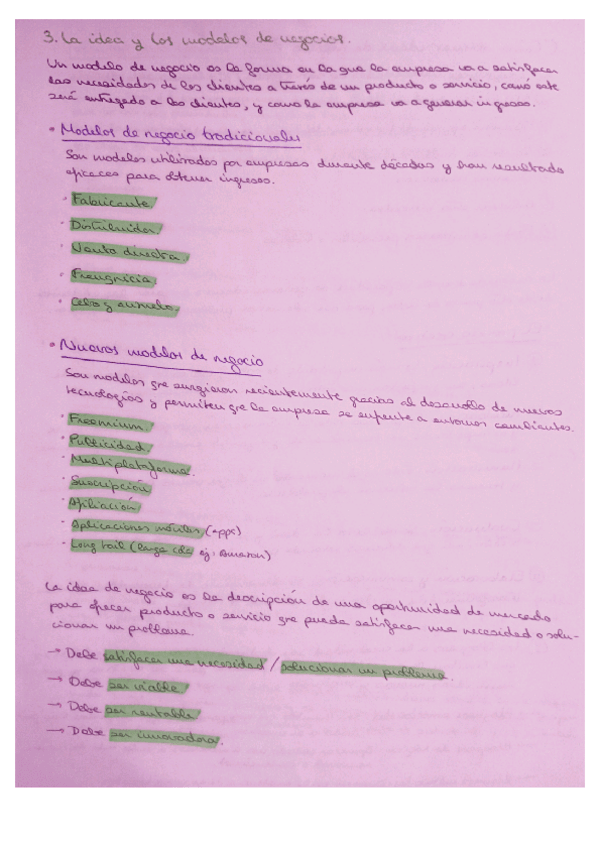 3. La idea y los modelos de negocios.
Un modelo de negocio es la forma en la que la empresa va a satisfacer
las necesidades de los clientes a través de un producto o servicio, cómo este
será entregado a los clientes, y como la empresa va a generar ingresos.
• Modelos de negocio tradicionales
Son modelos utilizados por empresas durante décadas y han resultado
eficaces para obtener ingresos.
· Fabricante.
· Distribuidor.
· Venta directa.
· Franquicia.
· Cebo y anzuelo.
• Nuevos modelos de negocio
Son modelos que surgieron recientemente gracias al desarrollo de nuevas
tecnologías y permiten que la empresa se enfrente a entornos cambiantes.
· Freemium.
· Publicidad.
· Multiplataforma.
· Suscripción
· Afiliación
· Aplicaciones móviles (apps)
· Long tail (larga cola ej: Amazon)
La idea de negocio es la descripción de una oportunidad de mercado
para ofrecer producto o servicio que pueda satisfacer una necesidad o solu-
cionar un problema.
→ Debe satisfacer una necesidad / solucionar un problema.
→ Debe ser viable.
→ Debe ser rentable.
→ Debe ser innovadora.